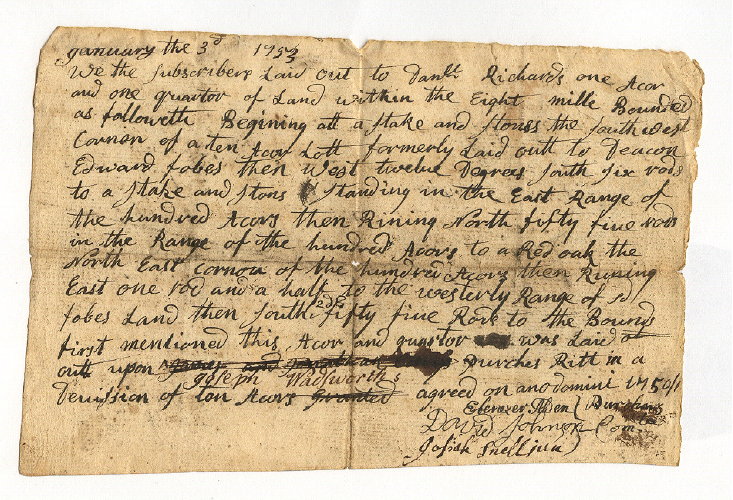 January the 3d 1753
We the Subscribers Laid out to Danll. Richards one Acor
and one quartor of Land within the Eight mille Bounded
as followeth Begining att a Stake and Stones the South west
Cornor of a ten Acor Lott formerly Laid outt to Deacon
Edward fobes then West twelve Degrees South Six rods
to a Stake and Stons Standing in the East Range of
the hundred Acors then Rining North fifty five rods
in the Range of the hundred Acors to a Red oak the
North East Cornor of the hundred Acors then Runing
East one rod and a half to the westerly Range of sd
fobes Land then South fifty five Rods to the Bounds
first mentioned this Acor and quartor was Laid
out upon Purches Ritt in a
Joseph Wadsworths
Devission of ton Acors granted agreed on anodomini 1750/1
Ebenezer Alden
David Johnson Com
Josiah Snell jun